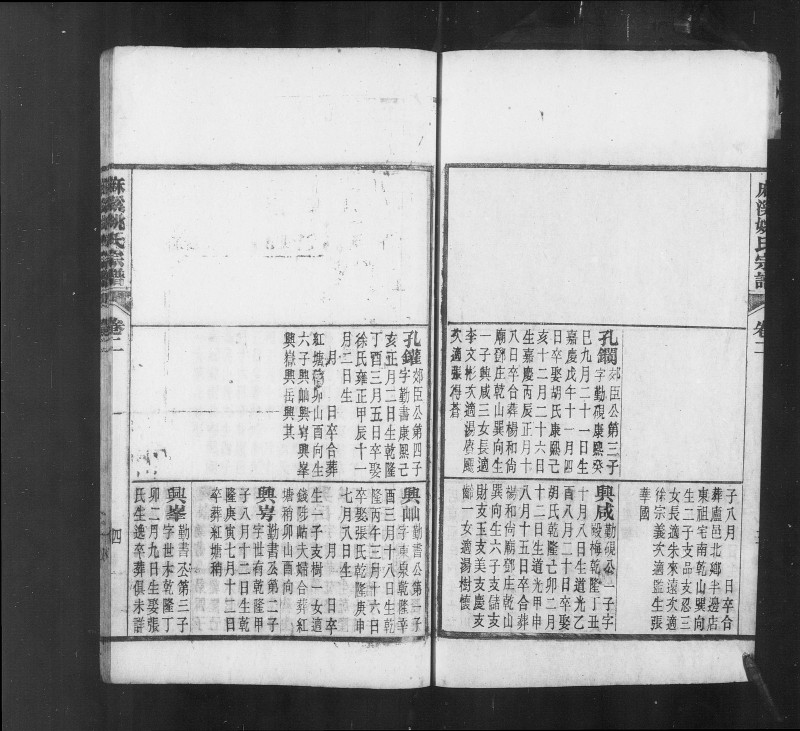 麻溪姚氏宗譜
卷二
子八月　日卒合
葬廬邑北鄉半邊店
東祖宅南乾山巽向
生二子支品支忍三
女長適朱來遠次適
徐宗義次適監生張
華國
孔鐗郊臣公第三子
字勤硯康熙癸
巳九月二十一日生
嘉慶戊午十一月四
日卒娶胡氏康熙
亥十二月二十六日
生嘉慶丙辰正月十
八日卒合葬楊和尚
廟鄧庄乾山巽向生
一子興咸三女長適
李文彬次適湯
次適張得
興咸勤硯公一子字
毅梅乾隆丁丑
十月八日生道光乙
酉八月二十日卒娶
胡氏乾隆己卯二月
十二日生道光甲申
八月十五日卒合葬
楊和尚廟鄧庄乾山
巽向生六子支喆支
財支玉支美支慶支
一女適湯樹懷
孔鑵郊臣公第四子
字勤書康熙己
亥正月二日生乾隆
丁酉三月五日卒娶
徐氏雍正甲辰十一
月二日生
月　日卒合葬
紅塘　卯山酉向生
六子興屾興岢興峯
興嶽興岳興其
興屾勤書公第一子
字東泉乾隆辛
酉三月十八日生乾
隆丙午三月十六日
卒娶張氏乾隆庚申
七月八日生
月　日卒
生一子支樹一女適
錢陟岵夫婦合葬紅
塘稍卯山酉向
興岢勤書公第二子
字世有乾隆甲
子八月十二日生乾
隆庚寅七月十二日
卒葬紅塘稍
興峯勤書公第三子
字世本乾隆丁
卯二月九日生娶張
氏生逸卒葬俱未譜
麻溪姚氏宗譜
卷二
四